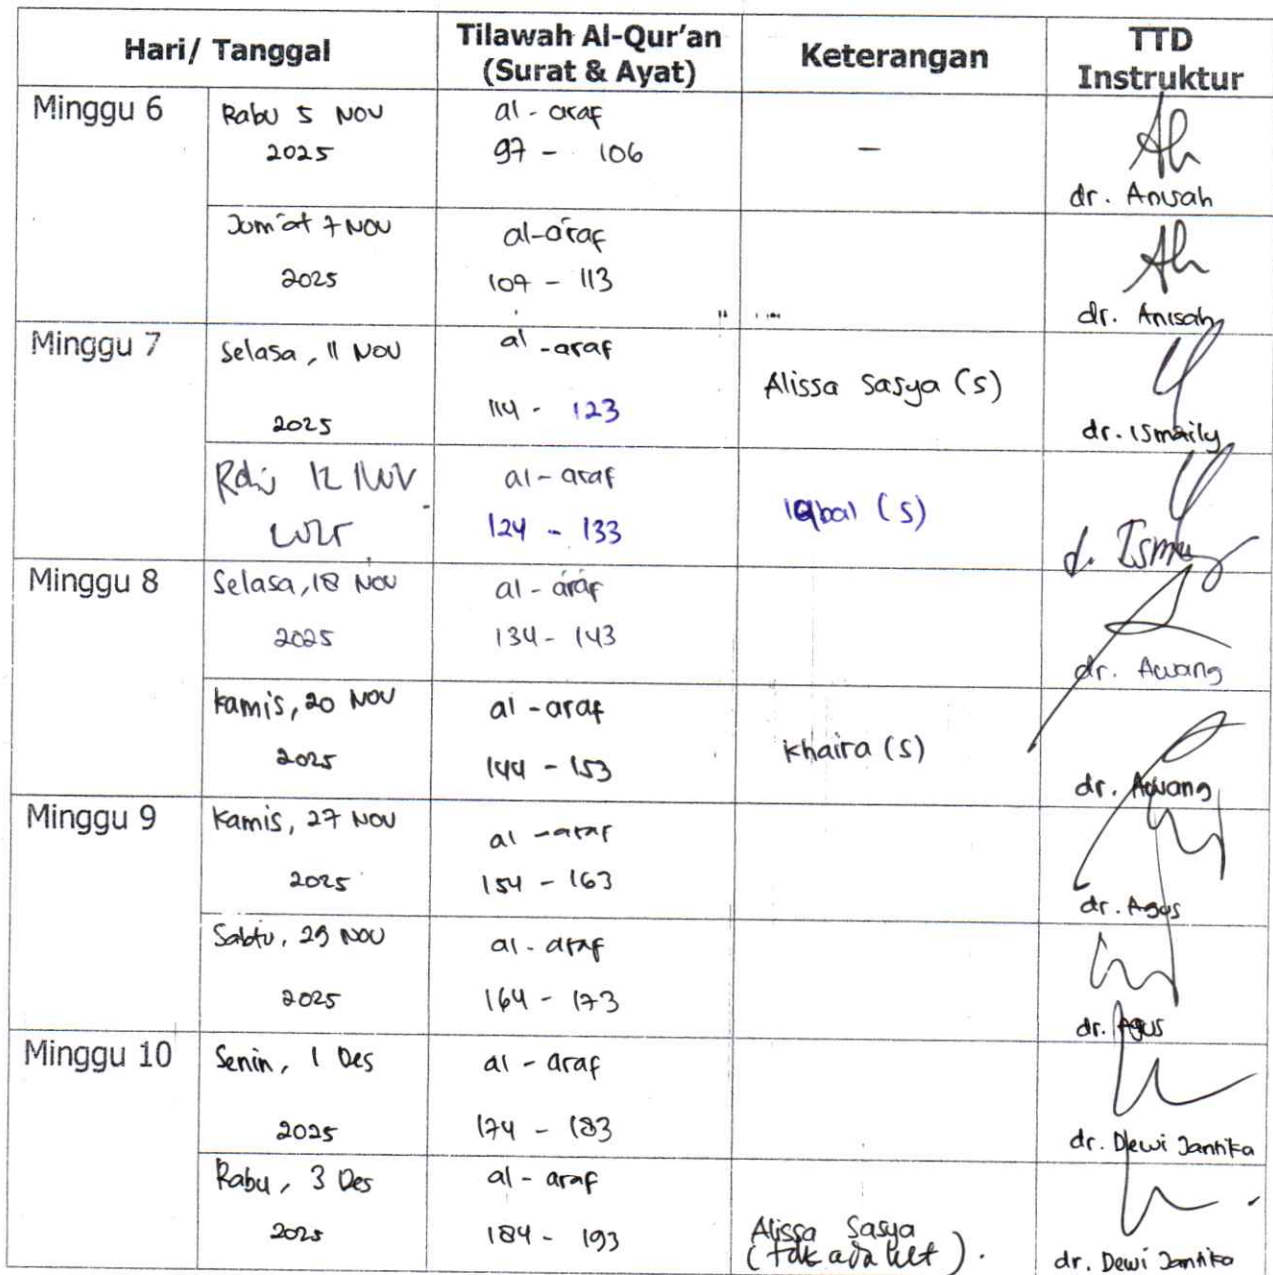 Hari/ Tanggal
Tilawah Al-Qur'an
(Surat & Ayat)
Keterangan
TTD
Instruktur
Minggu 6
Rabu 5 Nov
2025
al - araf
97 - 106
-
dr. Anisah
Jum'at 7 Nov
2025
al-a'raf
107 - 113
dr. Anisah
Minggu 7
Selasa, 11 Nov
2025
al - araf
114 - 123
Alissa Sasya (S)
dr. Ismaily
12 Nov
al - araf
124 - 133
Iqbal (S)
Minggu 8
Selasa, 18 Nov
2025
al - araf
134 - 143
dr. Awang
Kamis, 20 Nov
2025
al - araf
144 - 153
Khaira (S)
dr. Awang
Minggu 9
Kamis, 27 Nov
2025
al - araf
154 - 163
dr. Agus
Sabtu, 29 Nov
2025
al - araf
164 - 173
dr. Agus
Minggu 10
Senin, 1 Des
2025
al - araf
174 - 183
dr. Dewi Jantika
Rabu, 3 Des
2025
al - araf
184 - 193
Alissa Sasya
(tdk ada ket).
dr. Dewi Jantika